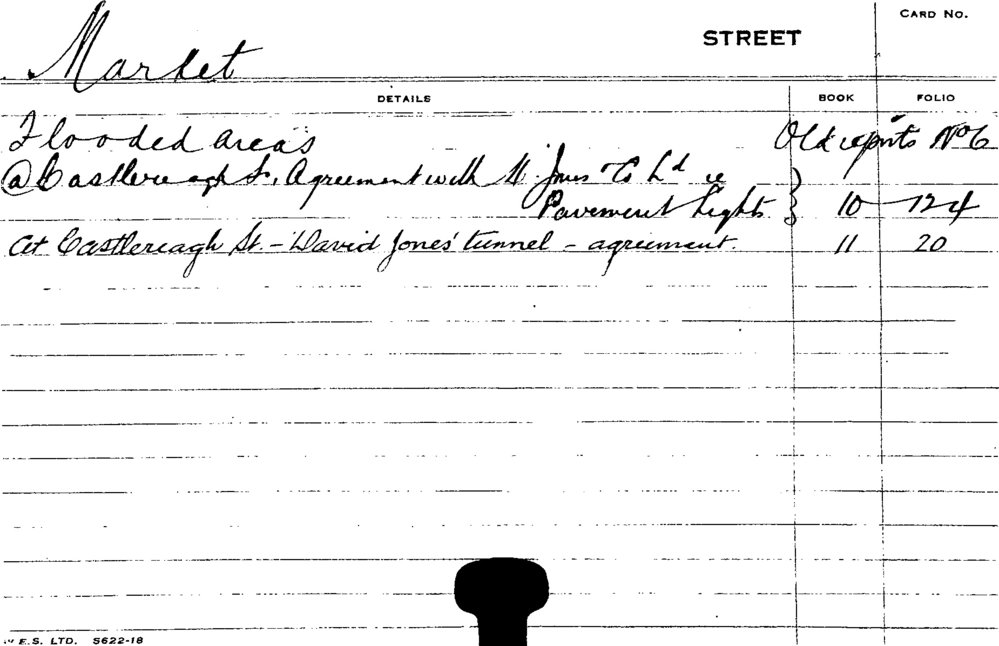 CARD NO.
Market STREET
DETAILS BOOK FOLIO
Flooded areas Old reports No 6
@ Castlereagh St. Agreement with Jones Co Ld re
Pavement Lights. 10 124
At Castlereagh St. - David Jones' tunnel - agreement. 11 20
E.S. LTD. S622-18